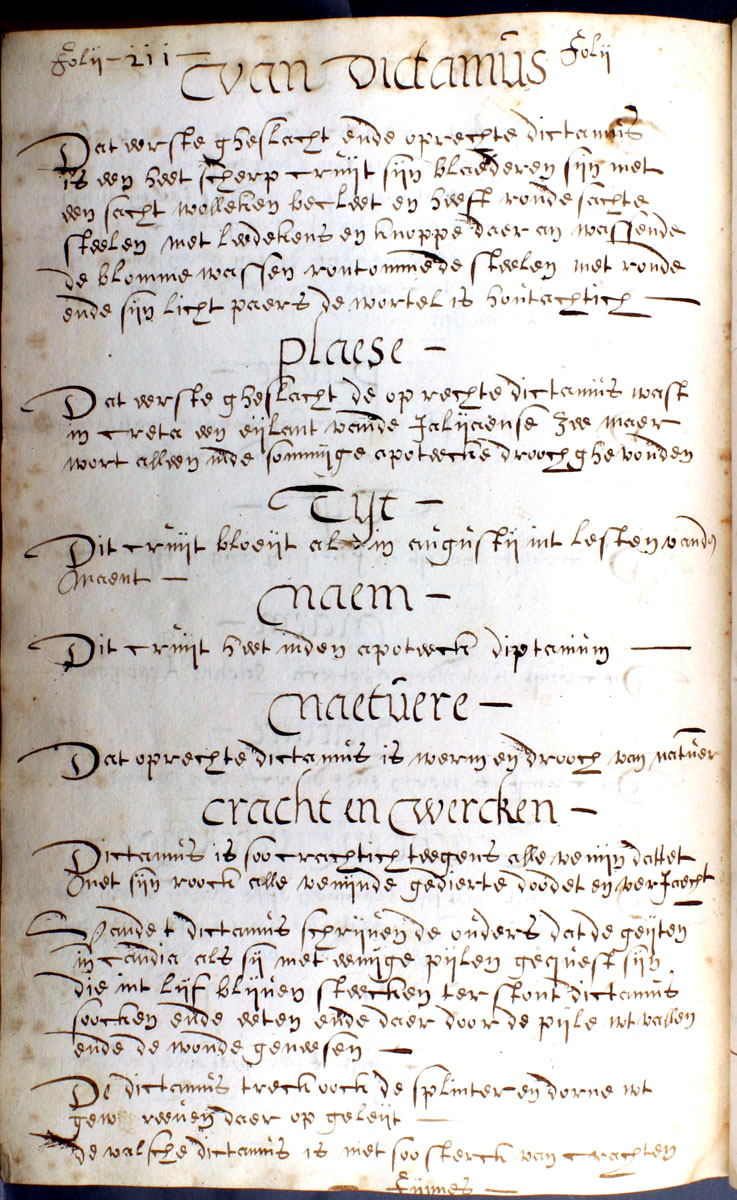 Folij - 211 - Folij
van dictamus
Dat eerste gheslacht ende oprechte dictamus
is een heet scherp cruijt sijn blaederen sijn met
een sacht wolleken becleet en heeft ronde sachte
steelen met leedekens en knoppe daer an wassende
de blomme wassen rontomme de steelen met ronde
ende sijn licht paers de wortel is houtachtich —
plaese -
Dat eerste gheslacht de oprechte dictamus wast
in creta een eijlant vande Jtalijaense Zee maer
wort alleen inde sommige apoteecke drooch ghevonden
Tyt -
Dit cruijt bloeijt al in augustij int lesten vande
Maent -
naem -
Dit cruijt heet inden apoteeck diptamum —
naetuere -
Dat oprechte dictamus is werm en drooch van natuer
cracht en wercken -
Dictamus is soo crachtich teegens alle venijn dattet
Met sijn roock alle venijnde gedierte doodet en verJaecht
Vande t dictamus schrijven de ouders dat de geijten
in candia als sij met eenige pijlen gequest sijn
die int lijf blijven steecken terstont dictamus
soocken ende eeten ende daer door de pijle wt vallen
ende de wonde geneesen —
De dictamus treck oock de splinter en dorne wt
gewreeven daer op geleijt —
de valsche dictamus is niet soo sterck van crachten